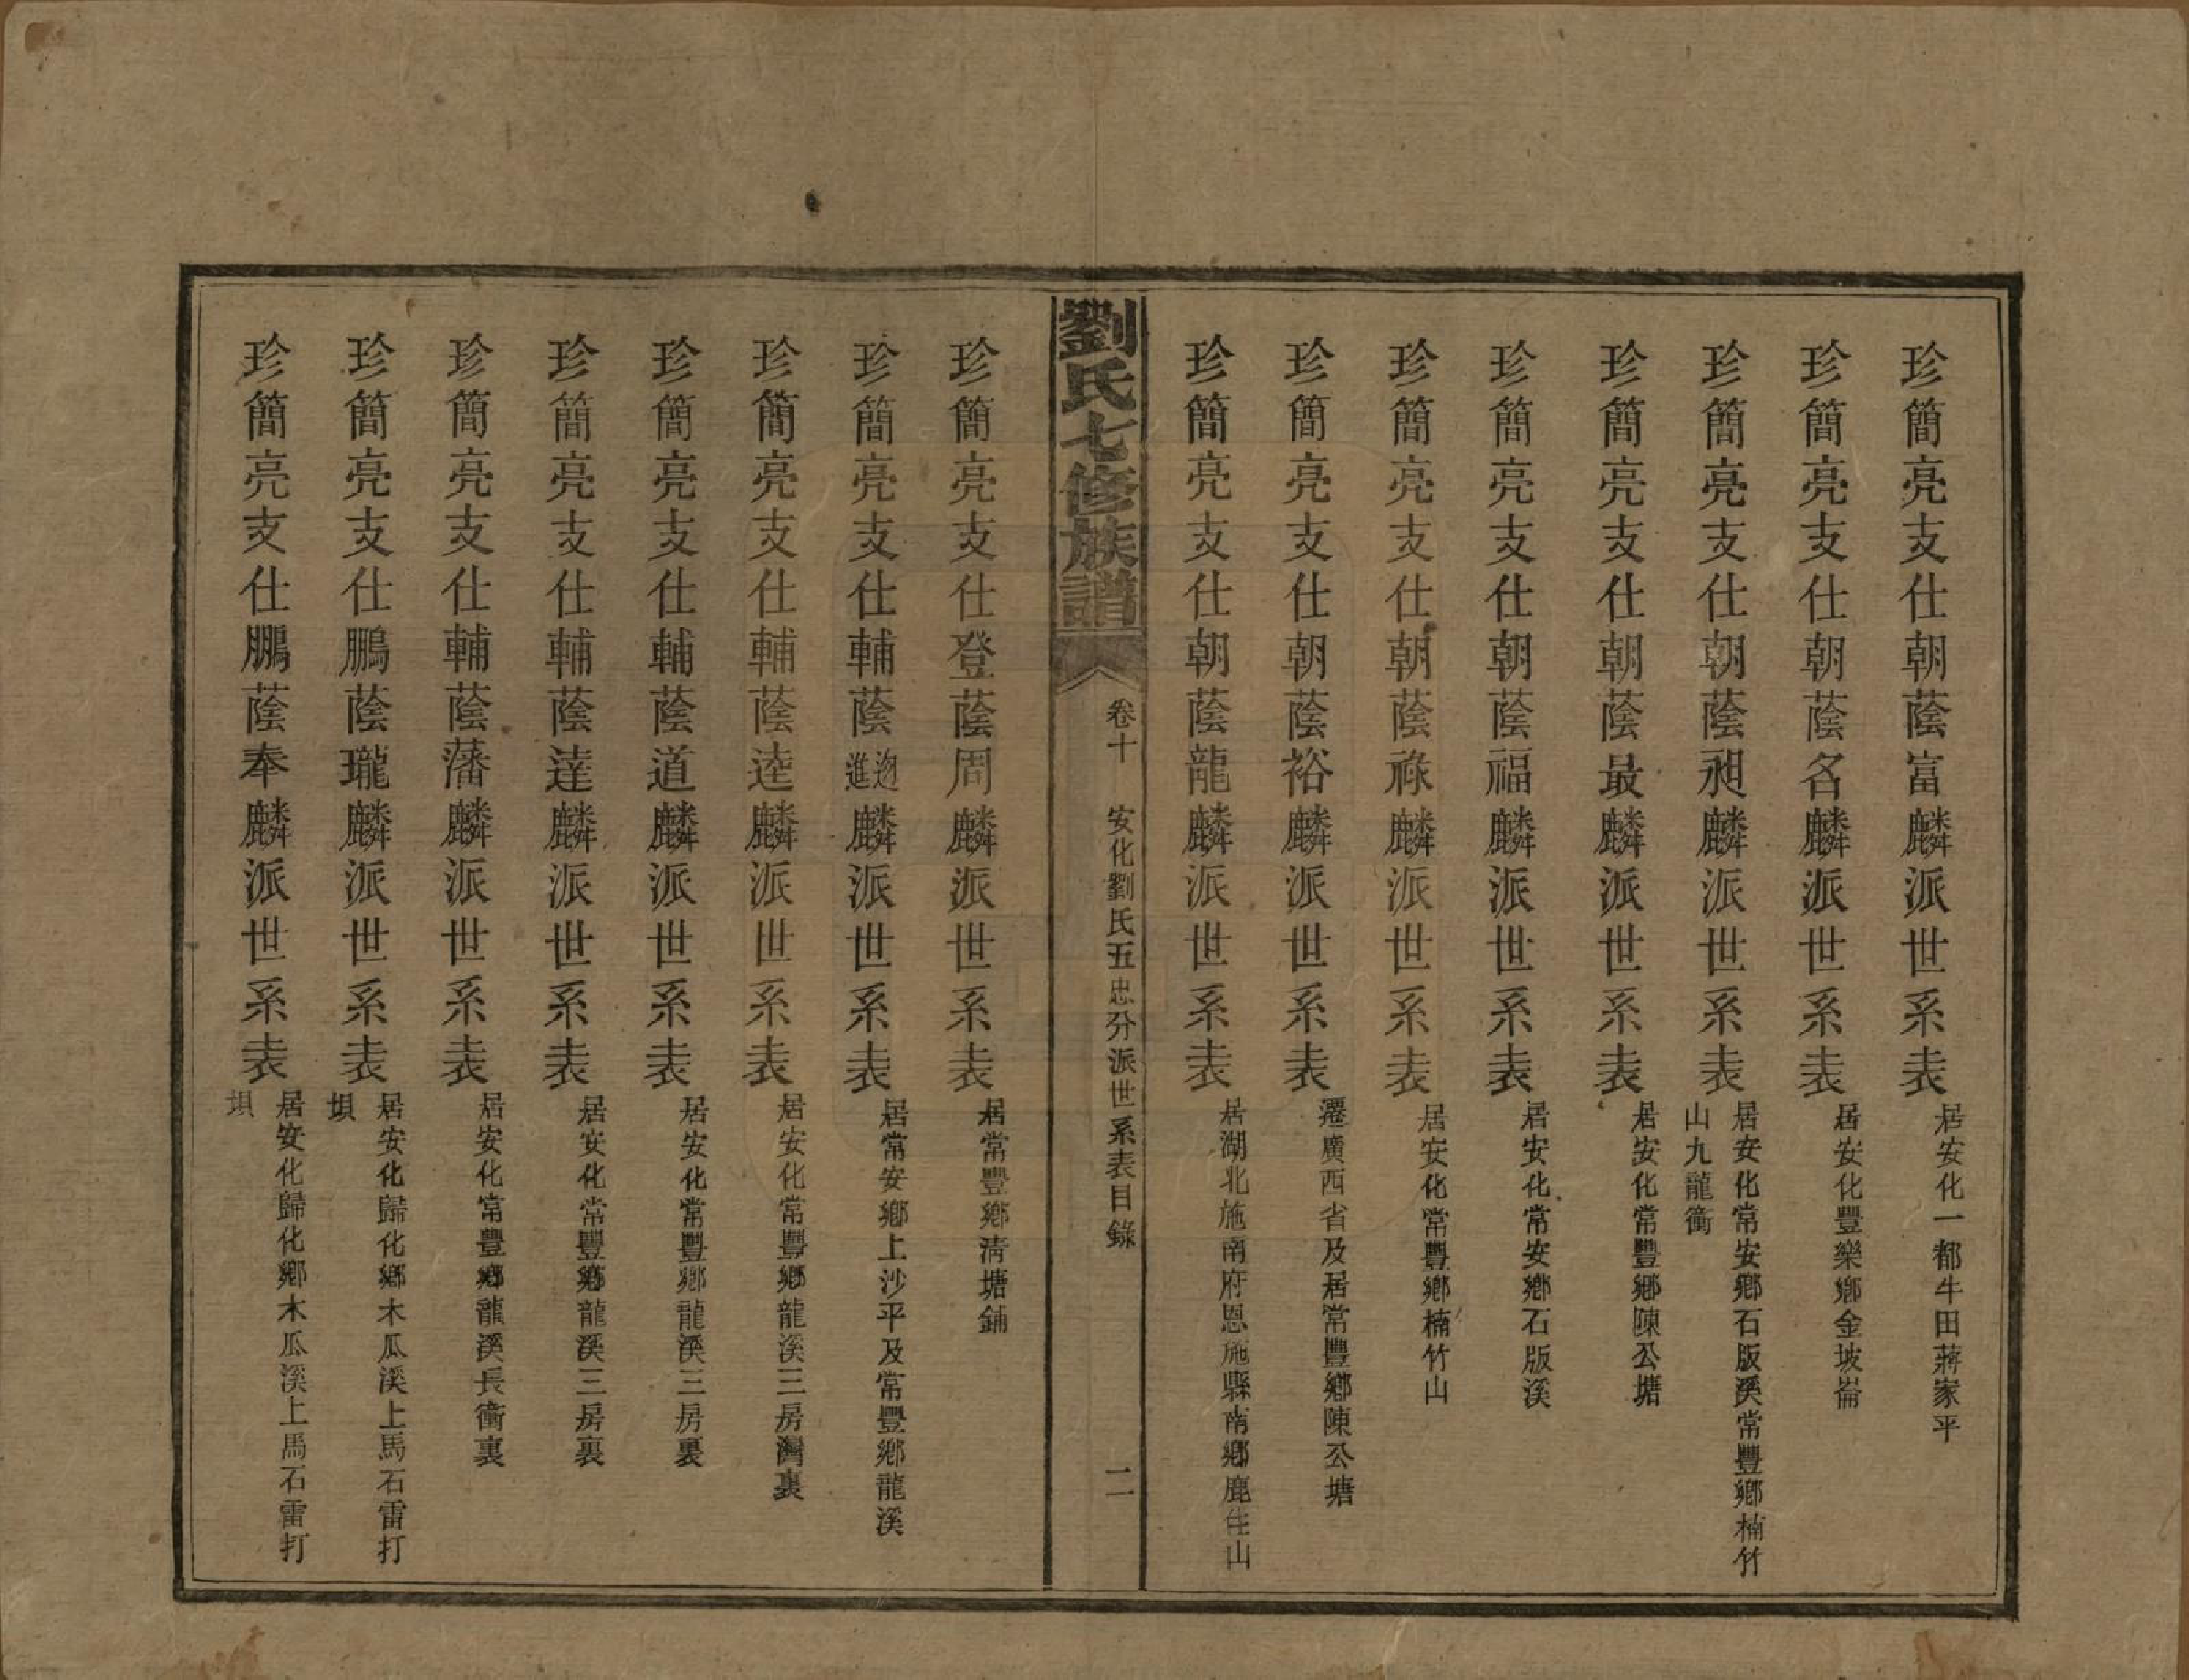 珍簡亮支仕朝蔭富麟派世系表 居安化一都牛田蔣家平
珍簡亮支仕朝蔭名麟派世系表 居安化豐樂鄉金坡崙
珍簡亮支仕朝蔭昶麟派世系表 居安化常安鄉石版溪常豐鄉楠竹
山九龍衝
珍簡亮支仕朝蔭最麟派世系表 居安化常豐鄉陳公塘
珍簡亮支仕朝蔭福麟派世系表 居安化常安鄉石版溪
珍簡亮支仕朝蔭祿麟派世系表 居安化常豐鄉楠竹山
珍簡亮支仕朝蔭裕麟派世系表 遷廣西省及居常豐鄉陳公塘
珍簡亮支仕朝蔭龍麟派世系表 居湖北施南府恩施縣南鄉鹿住山
劉氏七修族譜 卷十 安化劉氏五忠分派世系表目錄 二
珍簡亮支仕登蔭周麟派世系表 居常豐鄉清塘鋪
珍簡亮支仕輔蔭迎進麟派世系表 居常安鄉上沙平及常豐鄉龍溪
珍簡亮支仕輔蔭逵麟派世系表 居安化常豐鄉龍溪三房灣裏
珍簡亮支仕輔蔭道麟派世系表 居安化常豐鄉龍溪三房裏
珍簡亮支仕輔蔭達麟派世系表 居安化常豐鄉龍溪三房裏
珍簡亮支仕輔蔭藩麟派世系表 居安化常豐鄉龍溪長衝裏
珍簡亮支仕鵬蔭瓏麟派世系表 居安化歸化鄉木瓜溪上馬石雷打
垻
珍簡亮支仕鵬蔭奉麟派世系表 居安化歸化鄉木瓜溪上馬石雷打
垻